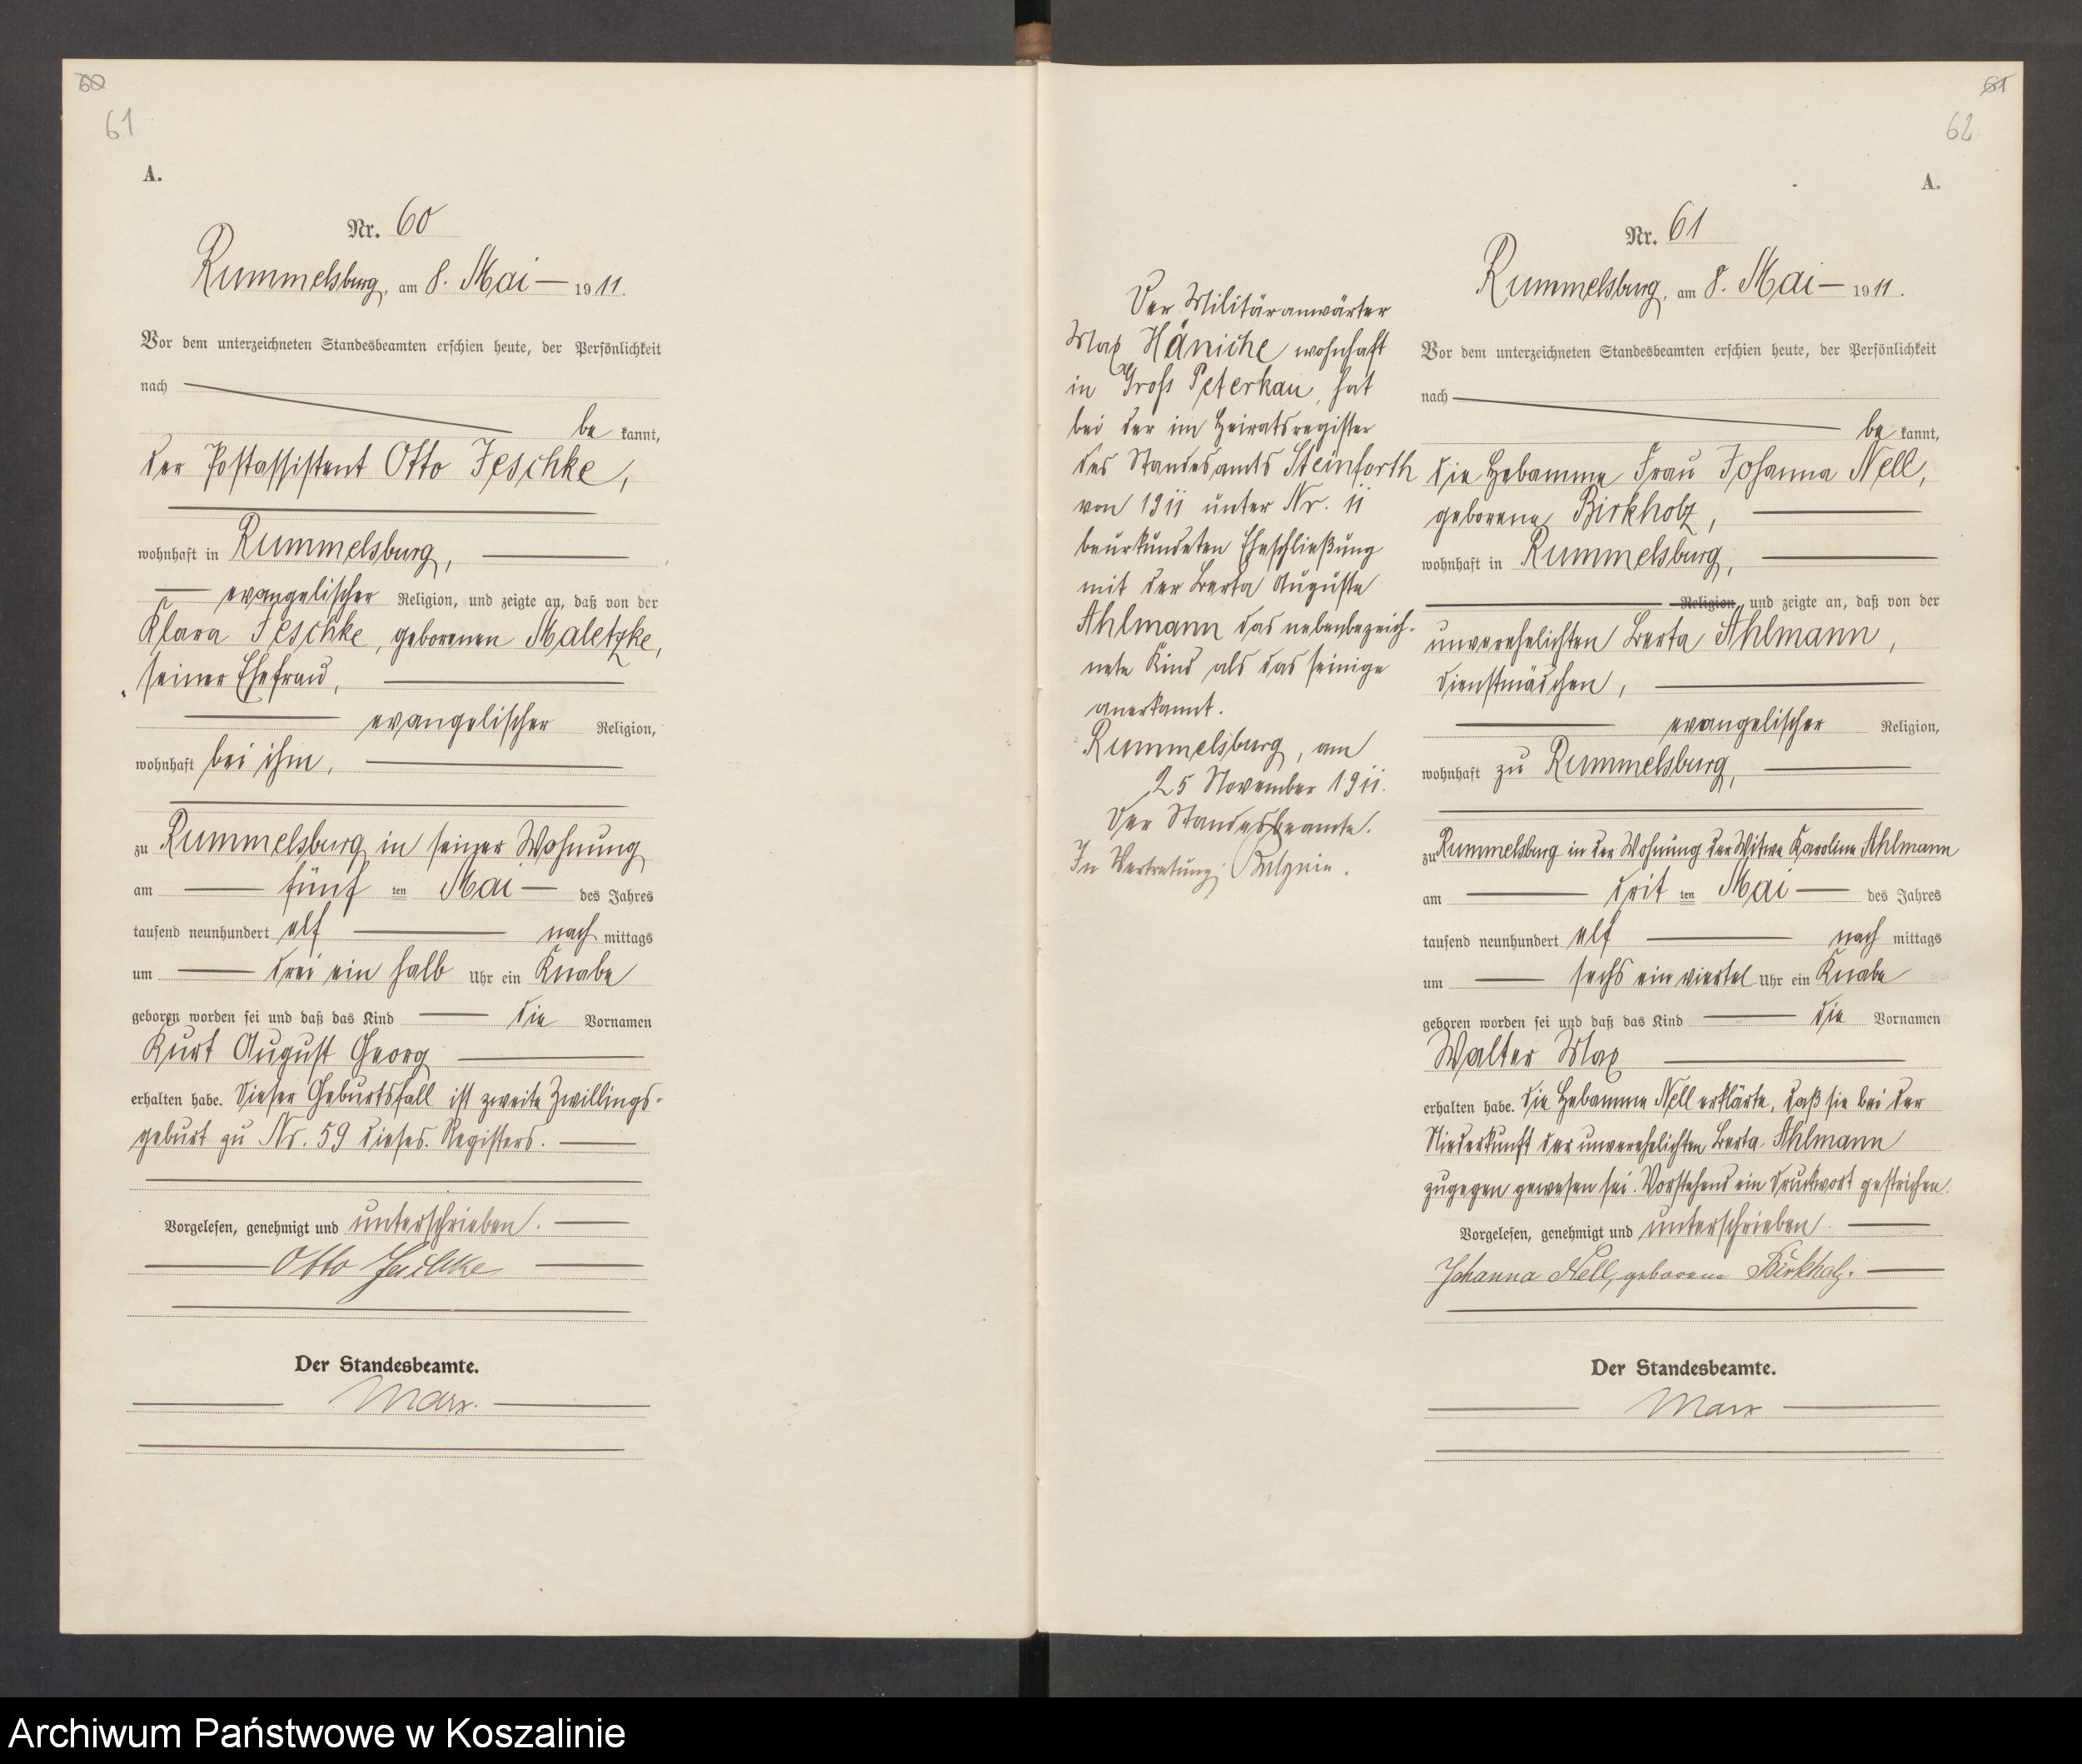 60
61
A.
Nr. 60
Rummelsburg, am 8. Mai 1911.
Vor dem unterzeichneten Standesbeamten erschien heute, der Persönlichkeit
nach
be kannt,
der Postassistent Otto Jeschke,
wohnhaft in Rummelsburg,
evangelischer Religion, und zeigte an, daß von der
Klara Jeschke, geborenen Maletzke,
seiner Ehefrau,
evangelischer Religion,
wohnhaft bei ihm,
zu Rummelsburg in seiner Wohnung
am fünf ten Mai des Jahres
tausend neunhundert elf nach mittags
um drei ein halb Uhr ein Knabe
geboren worden sei und daß das Kind die Vornamen
Kurt August Georg
erhalten habe. Dieser Geburtsfall ist zweite Zwillings-
geburt zu Nr. 59 dieses Registers.
Vorgelesen, genehmigt und unterschrieben.
Otto Jeschke
Der Standesbeamte.
Marx.
61
62
A.
Der Militäranwärter
Max Häniche wohnhaft
in Groß Peterkau, hat
bei der im Heiratsregister
des Standesamts Steinforth
von 1911 unter Nr. 11
beurkundeten Eheschließung
mit der Berta Auguste
Ahlmann das nebenbezeich-
nete Kind als das seinige
anerkannt.
Rummelsburg, am
25 November 1911.
Der Standesbeamte.
In Vertretung:
Nr. 61
Rummelsburg, am 8. Mai 1911.
Vor dem unterzeichneten Standesbeamten erschien heute, der Persönlichkeit
nach
be kannt,
die Hebamme Frau Johanna Nell,
geborene Birkholz,
wohnhaft in Rummelsburg,
Religion und zeigte an, daß von der
unverehelichten Berta Ahlmann,
Dienstmädchen,
evangelischer Religion,
wohnhaft zu Rummelsburg,
zu Rummelsburg in der Wohnung der Witwe Karoline Ahlmann
am drit ten Mai des Jahres
tausend neunhundert elf nach mittags
um sechs ein viertel Uhr ein Knabe
geboren worden sei und daß das Kind die Vornamen
Walter Max
erhalten habe. Die Hebamme Nell erklärte, daß sie bei der
Niederkunft der unverehelichten Berta Ahlmann
zugegen gewesen sei. Vorstehend ein Druckwort gestrichen.
Vorgelesen, genehmigt und unterschrieben
Johanna Nell, geborene Birkholz.
Der Standesbeamte.
Marx
Archiwum Państwowe w Koszalinie